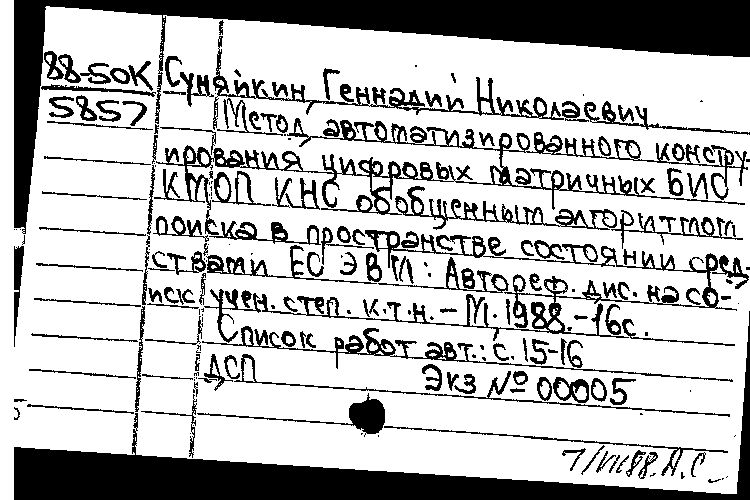 88-50К
5857
Суняйкин, Геннадий Николаевич.
Метод автоматизированного констру-
ирования цифровых матричных БИС
КМОП КНС обобщенным алгоритмом
поиска в пространстве состояний сред-
ствами ЕС ЭВМ: Автореф. дис. на со-
иск. учен. степ. к.т.н. – М., 1988. – 16с.
Список работ авт.: с. 15-16
ДСП Экз № 00005
7/VII88. А.С.